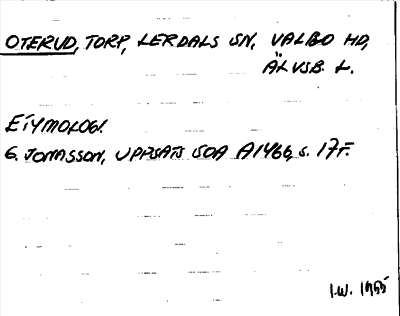 OTERUD, TORP, LERDALS SN, VALBO HD,
ÄLVSB. L.
ETYMOLOGI.
G. JONASSON, UPPSATS ISOA A1466, s. 17F.
I.W. 1955